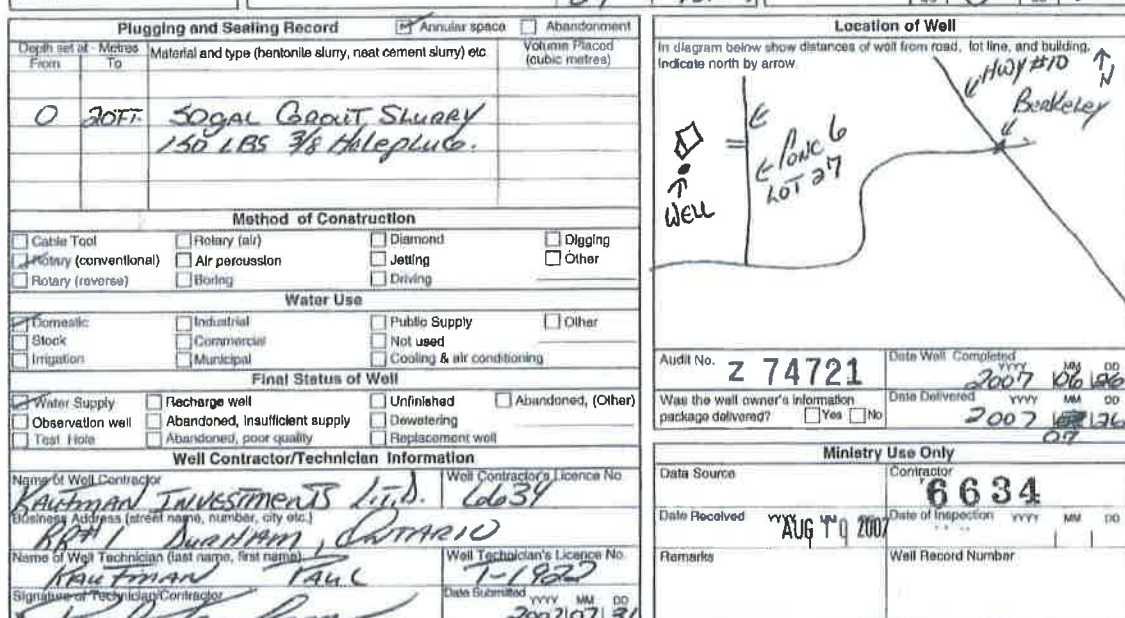 Plugging and Sealing Record Annular space Abandonment
Depth set at - Metres
From To
Material and type (bentonite slurry, neat cement slurry) etc.
Volume Placed
(cubic metres)
0 20FT. 50GAL GROUT SLURRY
150 LBS 3/8 Holeplug.
Method of Construction
Cable Tool Rotary (air) Diamond Digging
Rotary (conventional) Air percussion Jetting Other
Rotary (reverse) Boring Driving
Water Use
Domestic Industrial Public Supply Other
Stock Commercial Not used
Irrigation Municipal Cooling & air conditioning
Final Status of Well
Water Supply Recharge well Unfinished Abandoned, (Other)
Observation well Abandoned, insufficient supply Dewatering
Test Hole Abandoned, poor quality Replacement well
Well Contractor/Technician Information
Name of Well Contractor Well Contractor's Licence No.
KAUFMAN INVESTMENTS LTD. 6634
Business Address (street name, number, city etc.)
RR#1 DURHAM, ONTARIO
Name of Well Technician (last name, first name) Well Technician's Licence No.
KAUFMAN PAUL T-1922
Signature of Technician/Contractor Date Submitted YYYY MM DD
2007 07 31
Location of Well
In diagram below show distances of well from road, lot line, and building.
Indicate north by arrow.
HWY #10
N
Berkeley
CONC 6
LOT 27
WELL
Audit No. Z 74721
Date Well Completed YYYY MM DD
2007 06 26
Was the well owner's information
package delivered? Yes No
Date Delivered YYYY MM DD
2007 26
07
Ministry Use Only
Data Source Contractor
6634
Date Received YYYY AUG 2007 Date of Inspection YYYY MM DD
Remarks Well Record Number